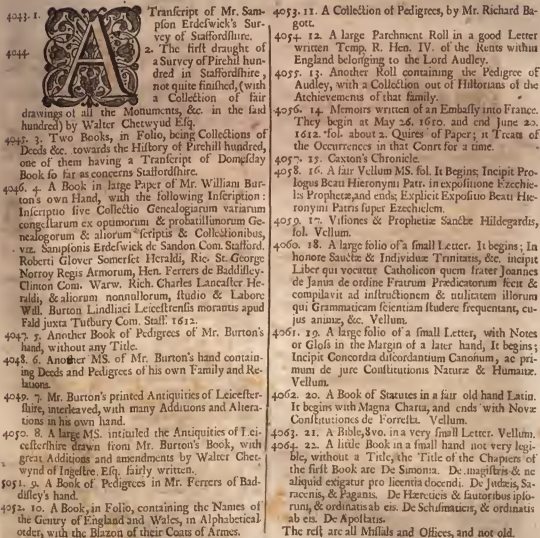 4043. 1. A Transcript of Mr. Sam-
pson Erdeswick's Sur-
vey of Staffordshire.
4044 2. The first draught of
a Survey of Pirehil hun-
dred in Staffordshire,
not quite finished, (with
a Collection of fair
drawings of all the Monuments, &c. in the said
hundred) by Walter Chetwynd Esq.
4045. 3. Two Books, in Folio, being Collections of
Deeds &c. towards the History of Pirehill hundred,
one of them having a Transcript of Domesday
Book so far as concerns Staffordshire.
4046. 4. A Book in large Paper of Mr. William Bur-
ton's own Hand, with the following Inscription:
Inscriptio sive Collectio Genealogiarum variarum
congestarum ex optimorum & probatissimorum Ge-
nealogorum & aliorum scriptis & Collectionibus,
viz. Sampsonis Erdeswick de Sandon Com. Stafford.
Roberti Glover Somerset Heraldi, Ric. St. George
Norroy Regis Armorum, Hen. Ferrers de Baddisley-
Clinton Com. Warw. Rich. Charles Lancaster He-
raldi, & aliorum nonnullorum, studio & Labore
Will. Burton Lindliaci Leicestrensis morantis apud
Fald juxta Tutbury Com. Staff. 1612.
4047. 5. Another Book of Pedigrees of Mr. Burton's
hand, without any Title.
4048. 6. Another MS. of Mr. Burton's hand contain-
ing Deeds and Pedigrees of his own Family and Re-
lations.
4049. 7. Mr. Burton's printed Antiquities of Leicester-
shire, interleaved, with many Additions and Altera-
tions in his own hand.
4050. 8. A large MS. intituled the Antiquities of Lei-
cestershire drawn from Mr. Burton's Book, with
great Additions and amendments by Walter Chet-
wynd of Ingestre. Esq. fairly written.
5051. 9. A Book of Pedigrees in Mr. Ferrers of Bad-
disley's hand.
4052. 10. A Book, in Folio, containing the Names of
the Gentry of England and Wales, in Alphabetical
order, with the Blazon of their Coats of Armes.
4053. 11. A Collection of Pedigrees, by Mr. Richard Ba-
gott.
4054. 12. A large Parchment Roll in a good Letter
written Temp. R. Hen. IV. of the Rents within
England belonging to the Lord Audley.
4055. 13. Another Roll containing the Pedigree of
Audley, with a Collection out of Historians of the
Atchievements of that family.
4056. 14. Memoirs written of an Embassy into France.
They begin at May 26. 1610. and end June 20.
1612. fol. about 2. Quires of Paper; it Treats of
the Occurrences in that Court for a time.
4057. 15. Caxton's Chronicle.
4058. 16. A fair Vellum MS. fol. It Begins; Incipit Pro-
logus Beati Hieronymi Patr. in expositione Ezechie-
lis Prophetæ, and ends; Explicit Expositio Beati Hie-
ronymi Patris super Ezechielem.
4059. 17. Visiones & Prophetiæ Sanctæ Hildegardis,
fol. Vellum.
4060. 18. A large folio of a small Letter. It begins; In
honore Sanctæ & Individuæ Trinitatis, &c. incipit
Liber qui vocatur Catholicon quem frater Joannes
de Janua de ordine Fratrum Prædicatorum fecit &
compilavit ad instructionem & utilitatem illorum
qui Grammaticam scientiam studere frequentant, cu-
jus animæ, &c. Vellum.
4061. 19. A large folio of a small Letter, with Notes
or Gloss in the Margin of a later hand, It begins;
Incipit Concordia discordantium Canonum, ac pri-
mum de jure Constitutionis Naturæ & Humanæ.
Vellum.
4062. 20. A Book of Statutes in a fair old hand Latin.
It begins with Magna Charta, and ends with Novæ
Constitutiones de Forresta. Vellum.
4063. 21. A Bible, 8vo. in a very small Letter. Vellum.
4064. 22. A little Book in a small hand not very legi-
ble, without a Title, the Title of the Chapters of
the first Book are De Simonia. De magistris & ne
aliquid exigatur pro licentia docendi. De Judæis, Sa-
racenis, & Paganis. De Hæreticis & fautoribus ipso-
rum, & ordinatis ab eis. De Schismaticis, & ordinatis
ab eis. De Apostatis.
The rest are all Missals and Offices, and not old.